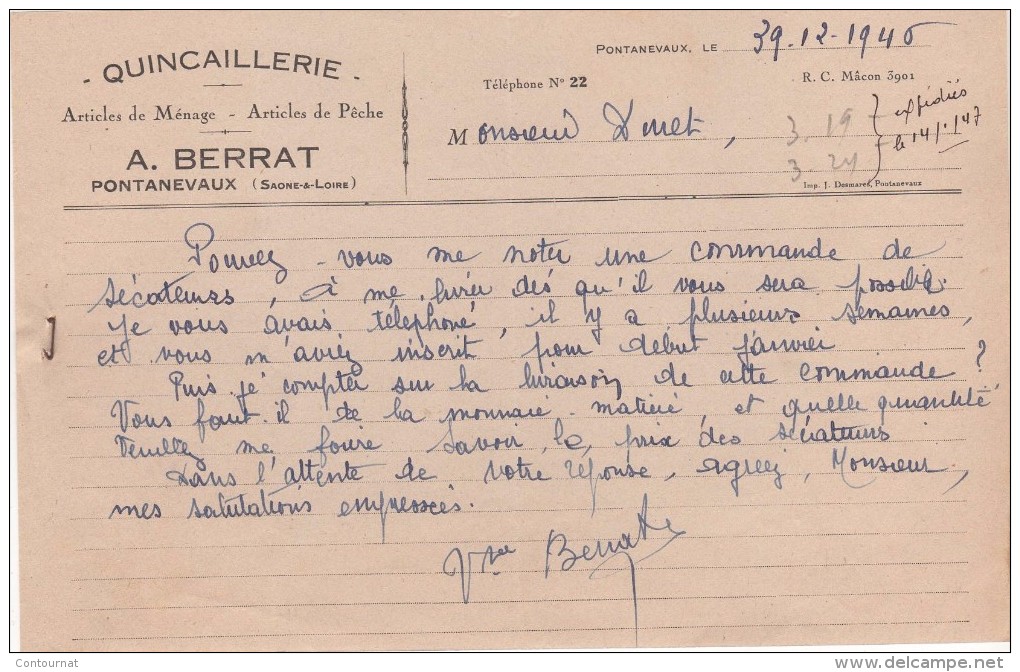 - QUINCAILLERIE -
Articles de Ménage - Articles de Pêche
A. BERRAT
PONTANEVAUX (SAONE-&-LOIRE)
PONTANEVAUX, LE 39-12-1946
Téléphone N° 22
R. C. Mâcon 3901
Monsieur
3.19
3.24
expédiés
le 14/1/47
Imp. J. Desmares, Pontanevaux
Pouvez-vous me noter une commande de
sécateurs, à me livrer dès qu'il vous sera possible.
Je vous avais téléphoné, il y a plusieurs semaines,
et vous m'aviez inscrit pour début janvier
Puis je compter sur la livraison de cette commande ?
Vous faut-il de la monnaie-matière, et quelle quantité
Veuillez me faire savoir le prix des sécateurs
Dans l'attente de votre réponse, agréez, Monsieur,
mes salutations empressées.
Vve Berrat
Contournat
www.delcampe.net